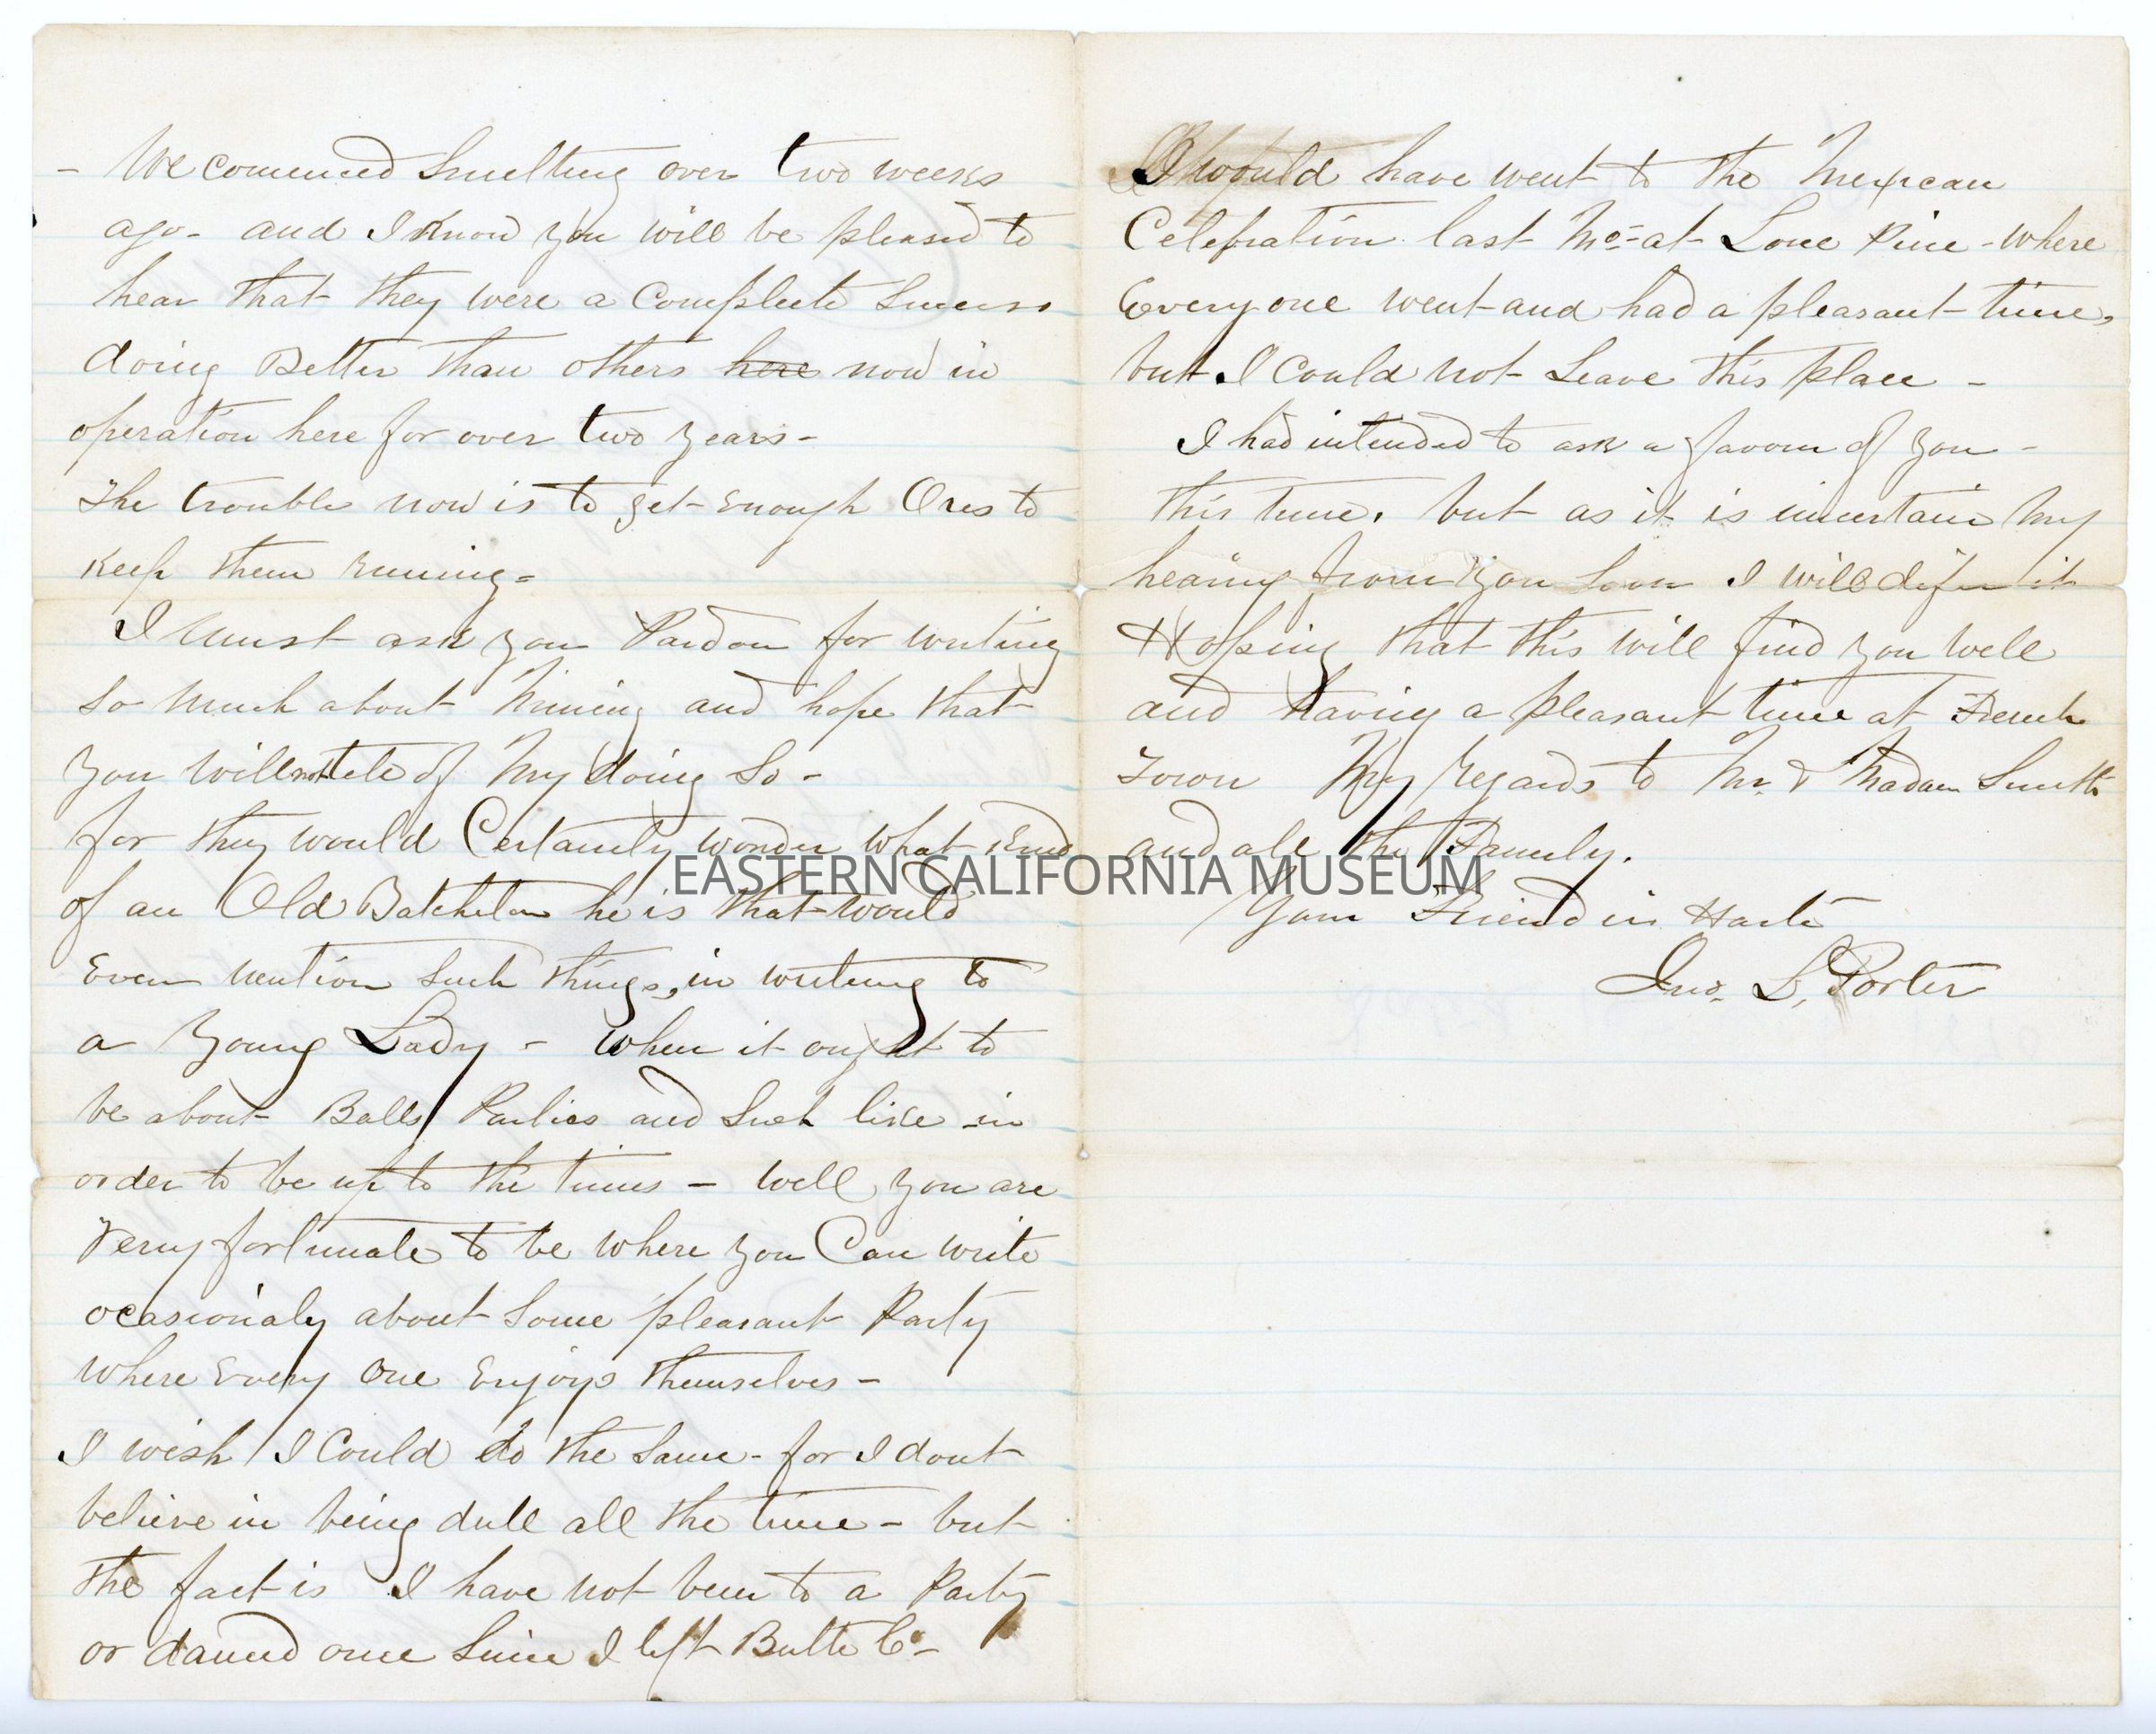 - We comenced Smelting over two weeks
ago - and I Know you will be pleased to
hear that they were a Complete Success
doing Better than others here now in
operation here for over two years -
The trouble now is to get enough Ores to
Keep them runing -
I must ask you Pardon for writing
so Much about Mining and hope that
you will not tele of My doing So -
for they would Certainly wonder what Kind
of an Old Batchelor he is that would
Even mention Such things, in writing to
a Young Lady - when it ought to
be about Balls Parties and Such like in
order to be up to the times - well you are
Verry fortunate to be where you Can write
ocasionaly about Some pleasant Party
where Every one Enjoys themselves -
I wish I Could do the Same - for I dont
believe in being dull all the time - but
the fact is I have not been to a Party
or danced once Since I left Butte Co -
I would have went to the Mexican
Celebration last Mo - at Lone Pine - where
Every one went and had a pleasant time,
but I Could not Leave this place -
I had intended to ask a favour of you -
this time, but as it is uncertain My
hearing from you Soon I will difer it
Hopeing that this will find you well
and having a pleasant time at French
Town My regards to Mr & Madam Smith
and all the Family.
Your Friend in Haste
Jno. L. Porter
EASTERN CALIFORNIA MUSEUM